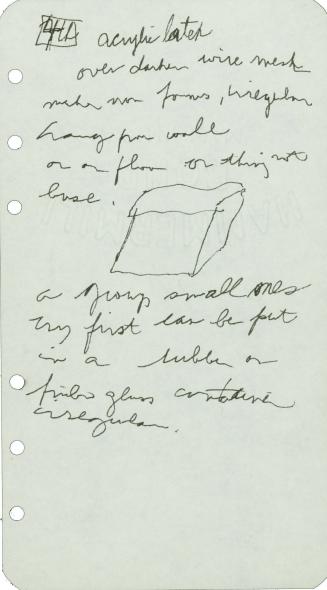 acrylic latex
over darker wire mesh
make non forms, irregular
hang from wall
or on floor or thing not
base.
a group small ones
try first can be put
in a rubber or
fiber glass container
irregular.